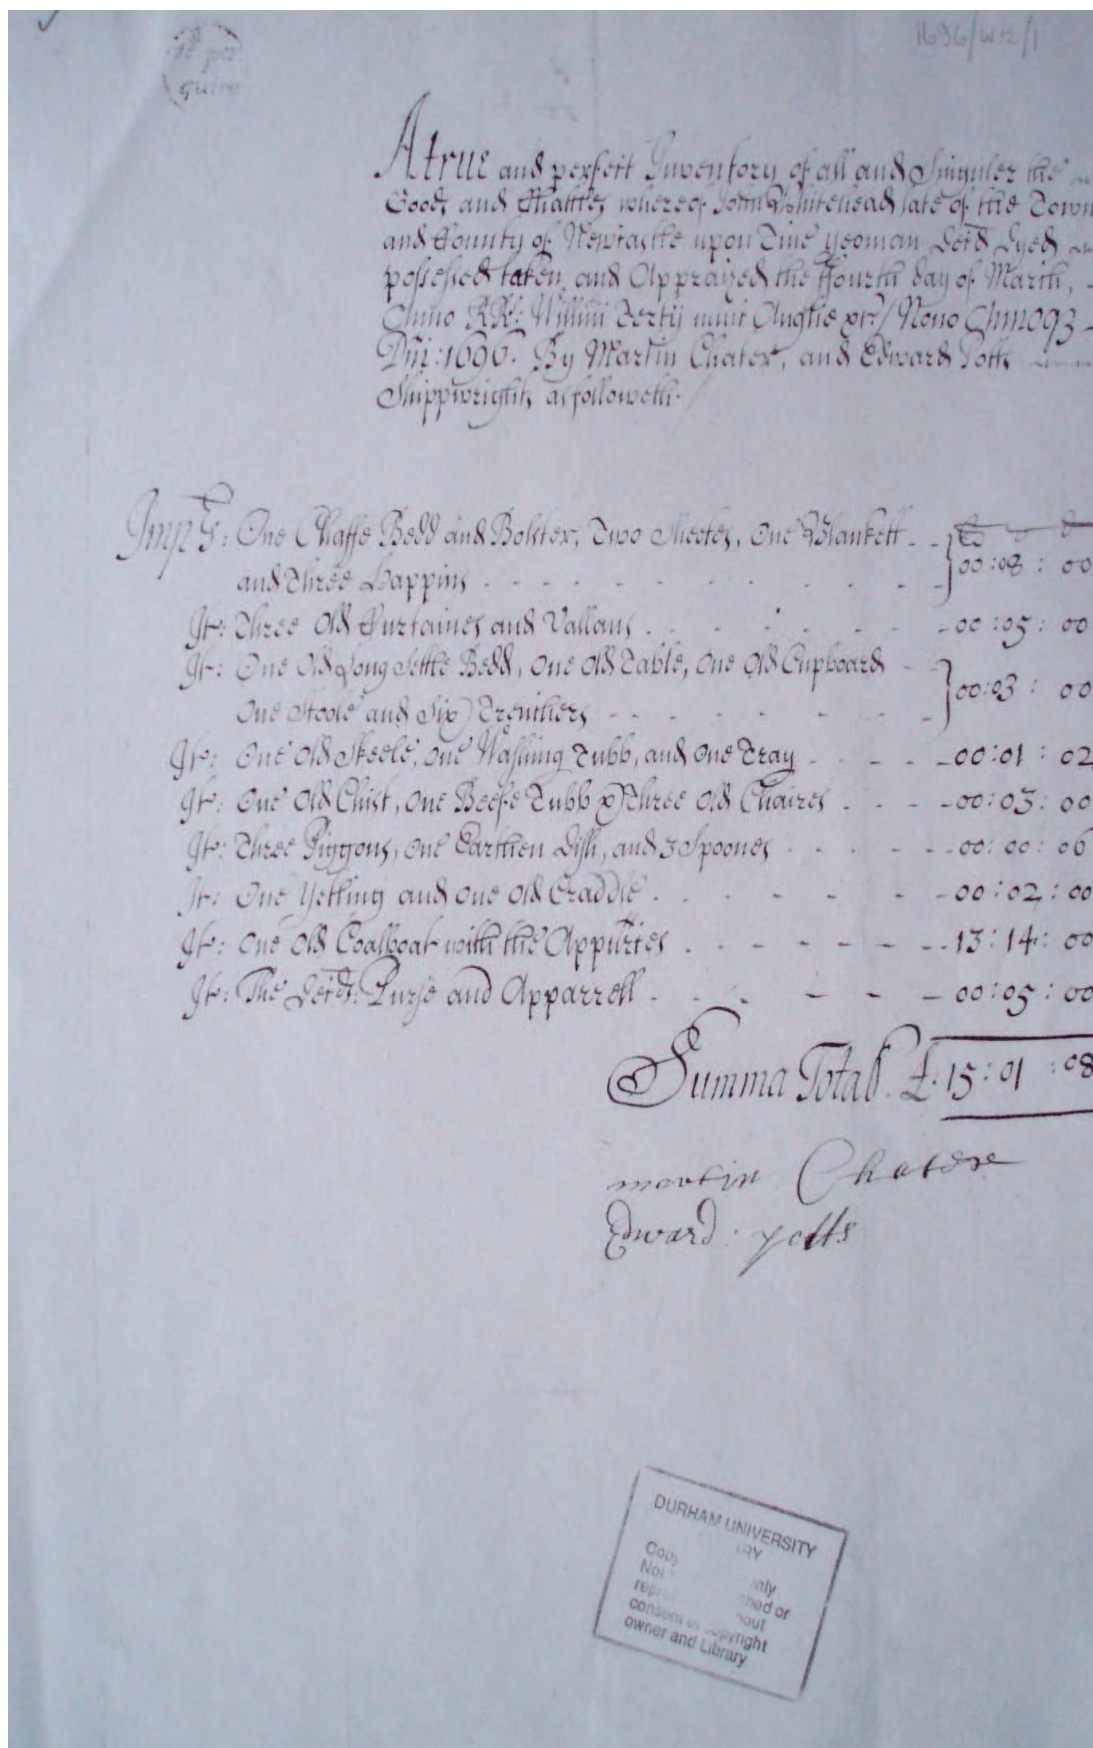 1696/W12/1
A true and perfect Inventory of all and Singuler the
Goods and Chattles whereof John Whitehead late of the Town
and County of Newcastle upon Tine yeoman Decd Dyed
possessed taken and Appraized the ffourth day of March,
Anno RRs: Willmi Tertij nunc Anglie &c/ Nono Annoq3
Dni: 1696. By Martin Chater, and Edward Potts
Shippwrights as followeth./
Imprs: One Chaffe Bedd and Bolster, Two Sheetes, One Blankett
and Three Happins 00:08:00
It: Three Old Curtaines and Vallans 00:05:00
It: One Old Long Settle Bedd, One Old Table, One Old Cupboard
One Stoole and Six Trenchers 00:03:00
It: One Old Skeele, One Washing Tubb, and One Tray 00:01:02
It: One Old Chist, One Beefe Tubb & Three Old Chaires 00:03:00
It: Three Piggons, One Earthen Dish, and 3 Spoones 00:00:06
It: One Yetling and One Old Craddle 00:02:00
It: One Old Coalboat with the Appurtes 13:14:00
It: The Decds: Purse and Apparrell 00:05:00
Summa Total £:15:01:08
martin Chater
Edward Potts
DURHAM UNIVERSITY
owner and Library